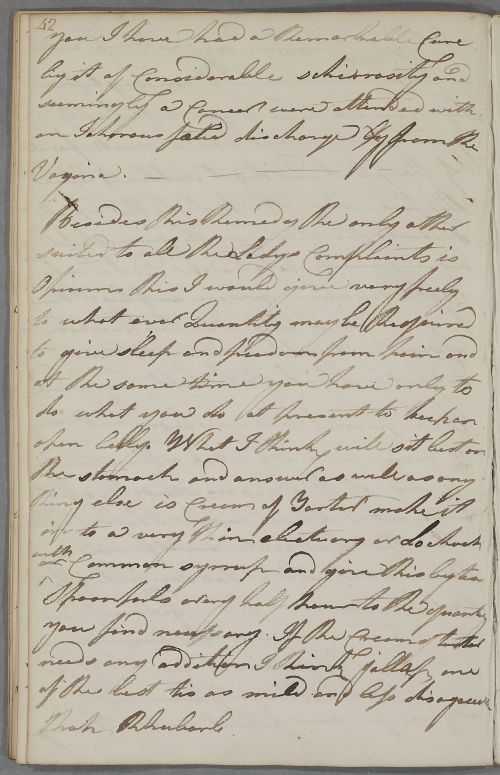 42
you I have had a Remarkable Cure
by it of Considerable schirrosity and
seemingly a Cancer were attended with
an Ichorous fetid discharge from the
Vagina.
Besides this Remedy the only other
suited to all the Ladys Complaints is
Opium this I would give very freely
to what ever Quantity may be Required
to give sleep and freedom from pain and
at the same time you have only to
do what you do at present to keep an
open belly. What I think will sit best on
the stomach and answer as well as any
thing else is Cream of Tartar make it
in to a very thin electuary or Lohoch
with Common syrrup and give this by tea
Spoonfuls every half hour to the quantity
you find necessary. If the Cream of tartar
needs any addition I think Jallap one
of the best tis as mild and less disagreeable
than Rhubarb